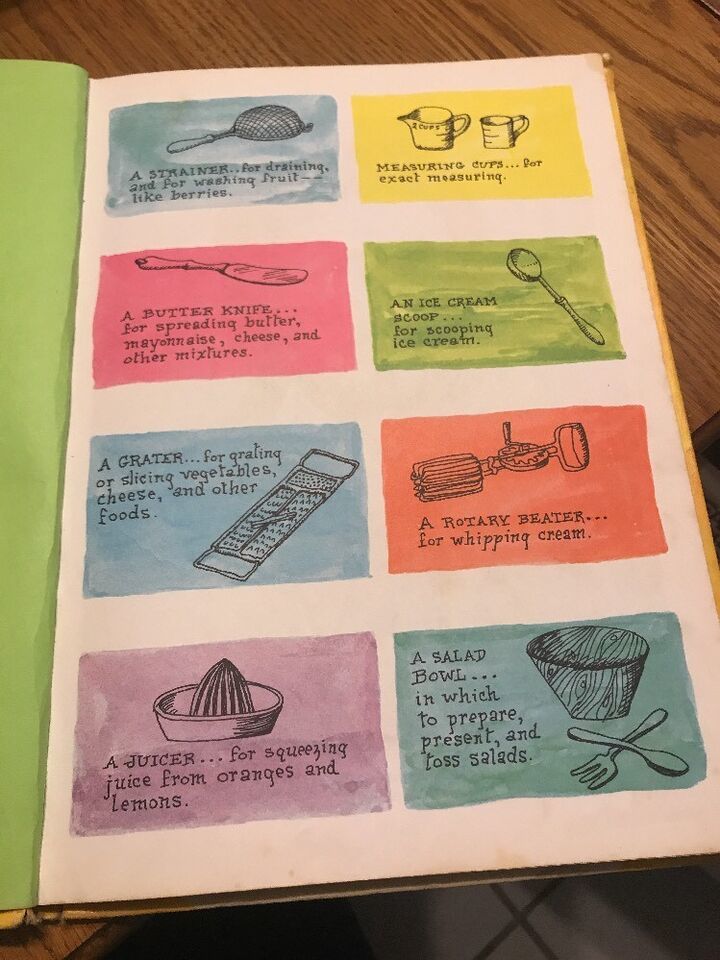 A STRAINER..for draining,
and for washing fruit--
like berries.
2 CUPS
MEASURING CUPS... for
exact measuring.
A BUTTER KNIFE...
for spreading butter,
mayonnaise, cheese, and
other mixtures.
AN ICE CREAM
SCOOP...
for scooping
ice cream.
A GRATER...for grating
or slicing vegetables,
cheese, and other
foods.
A ROTARY BEATER...
for whipping cream.
A JUICER... for squeezing
juice from oranges and
lemons.
A SALAD
BOWL...
in which
to prepare,
present, and
toss salads.